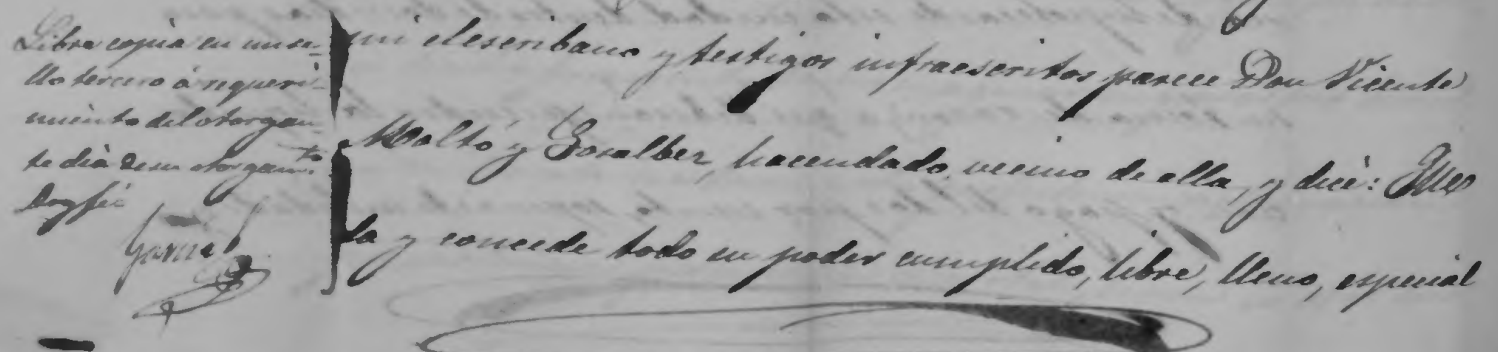 Libre copia en un se-
llo tercero á requeri-
miento del otorgan-
te dia de su otorgam.to
Doy fé
mi el escribano y testigos infraescritos parece Don Vicente
Moltó y Gosalbez, hacendado vecino de ella, y dice: Que
da y concede todo su poder cumplido, libre, lleno, especial